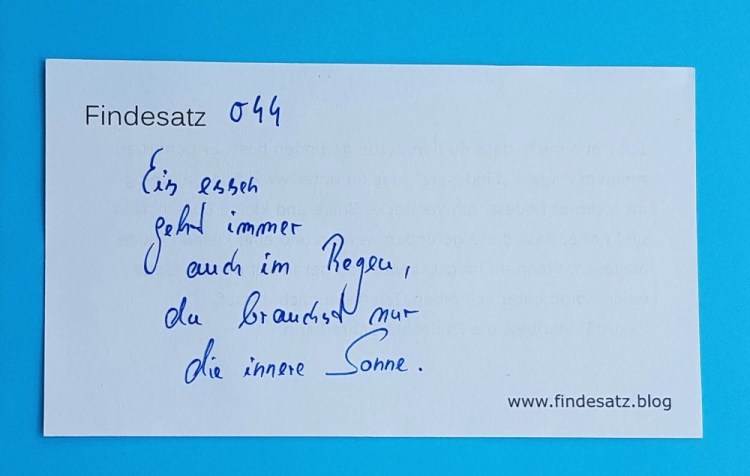 Findesatz 044
Eis essen
geht immer
auch im Regen,
du brauchst nur
die innere Sonne.
www.findesatz.blog